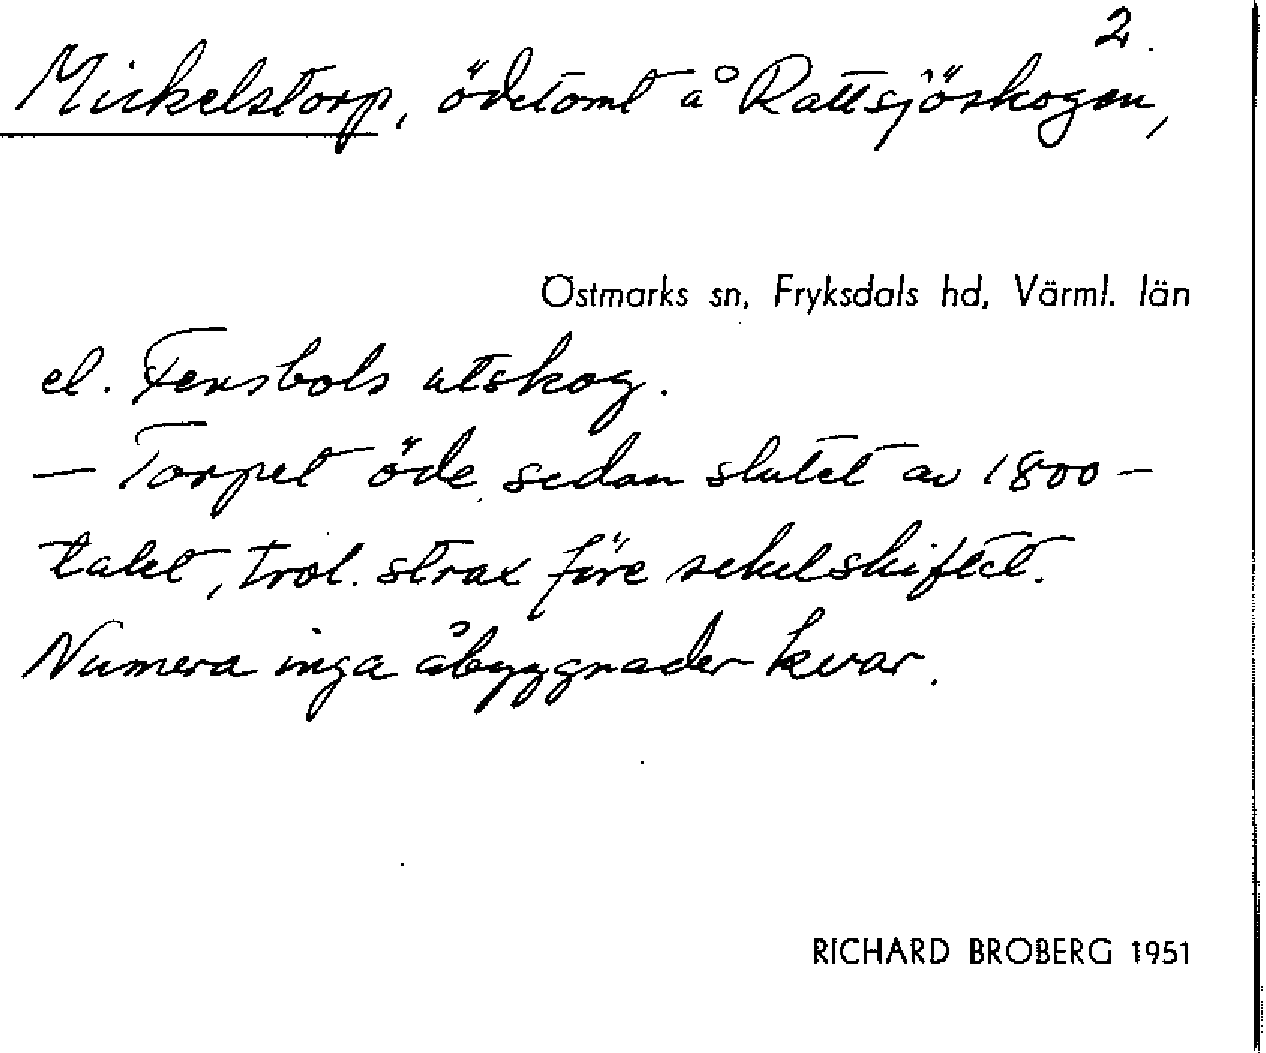 2.
Mickelstorp, ödetomt å Rattsjöskogen,
Östmarks sn, Fryksdals hd, Värml. län
el. Fensbols utskog.
— Torpet öde sedan slutet av 1800-
talet, trol. strax före sekelskiftet.
Numera inga åbyggnader kvar.
RICHARD BROBERG 1951